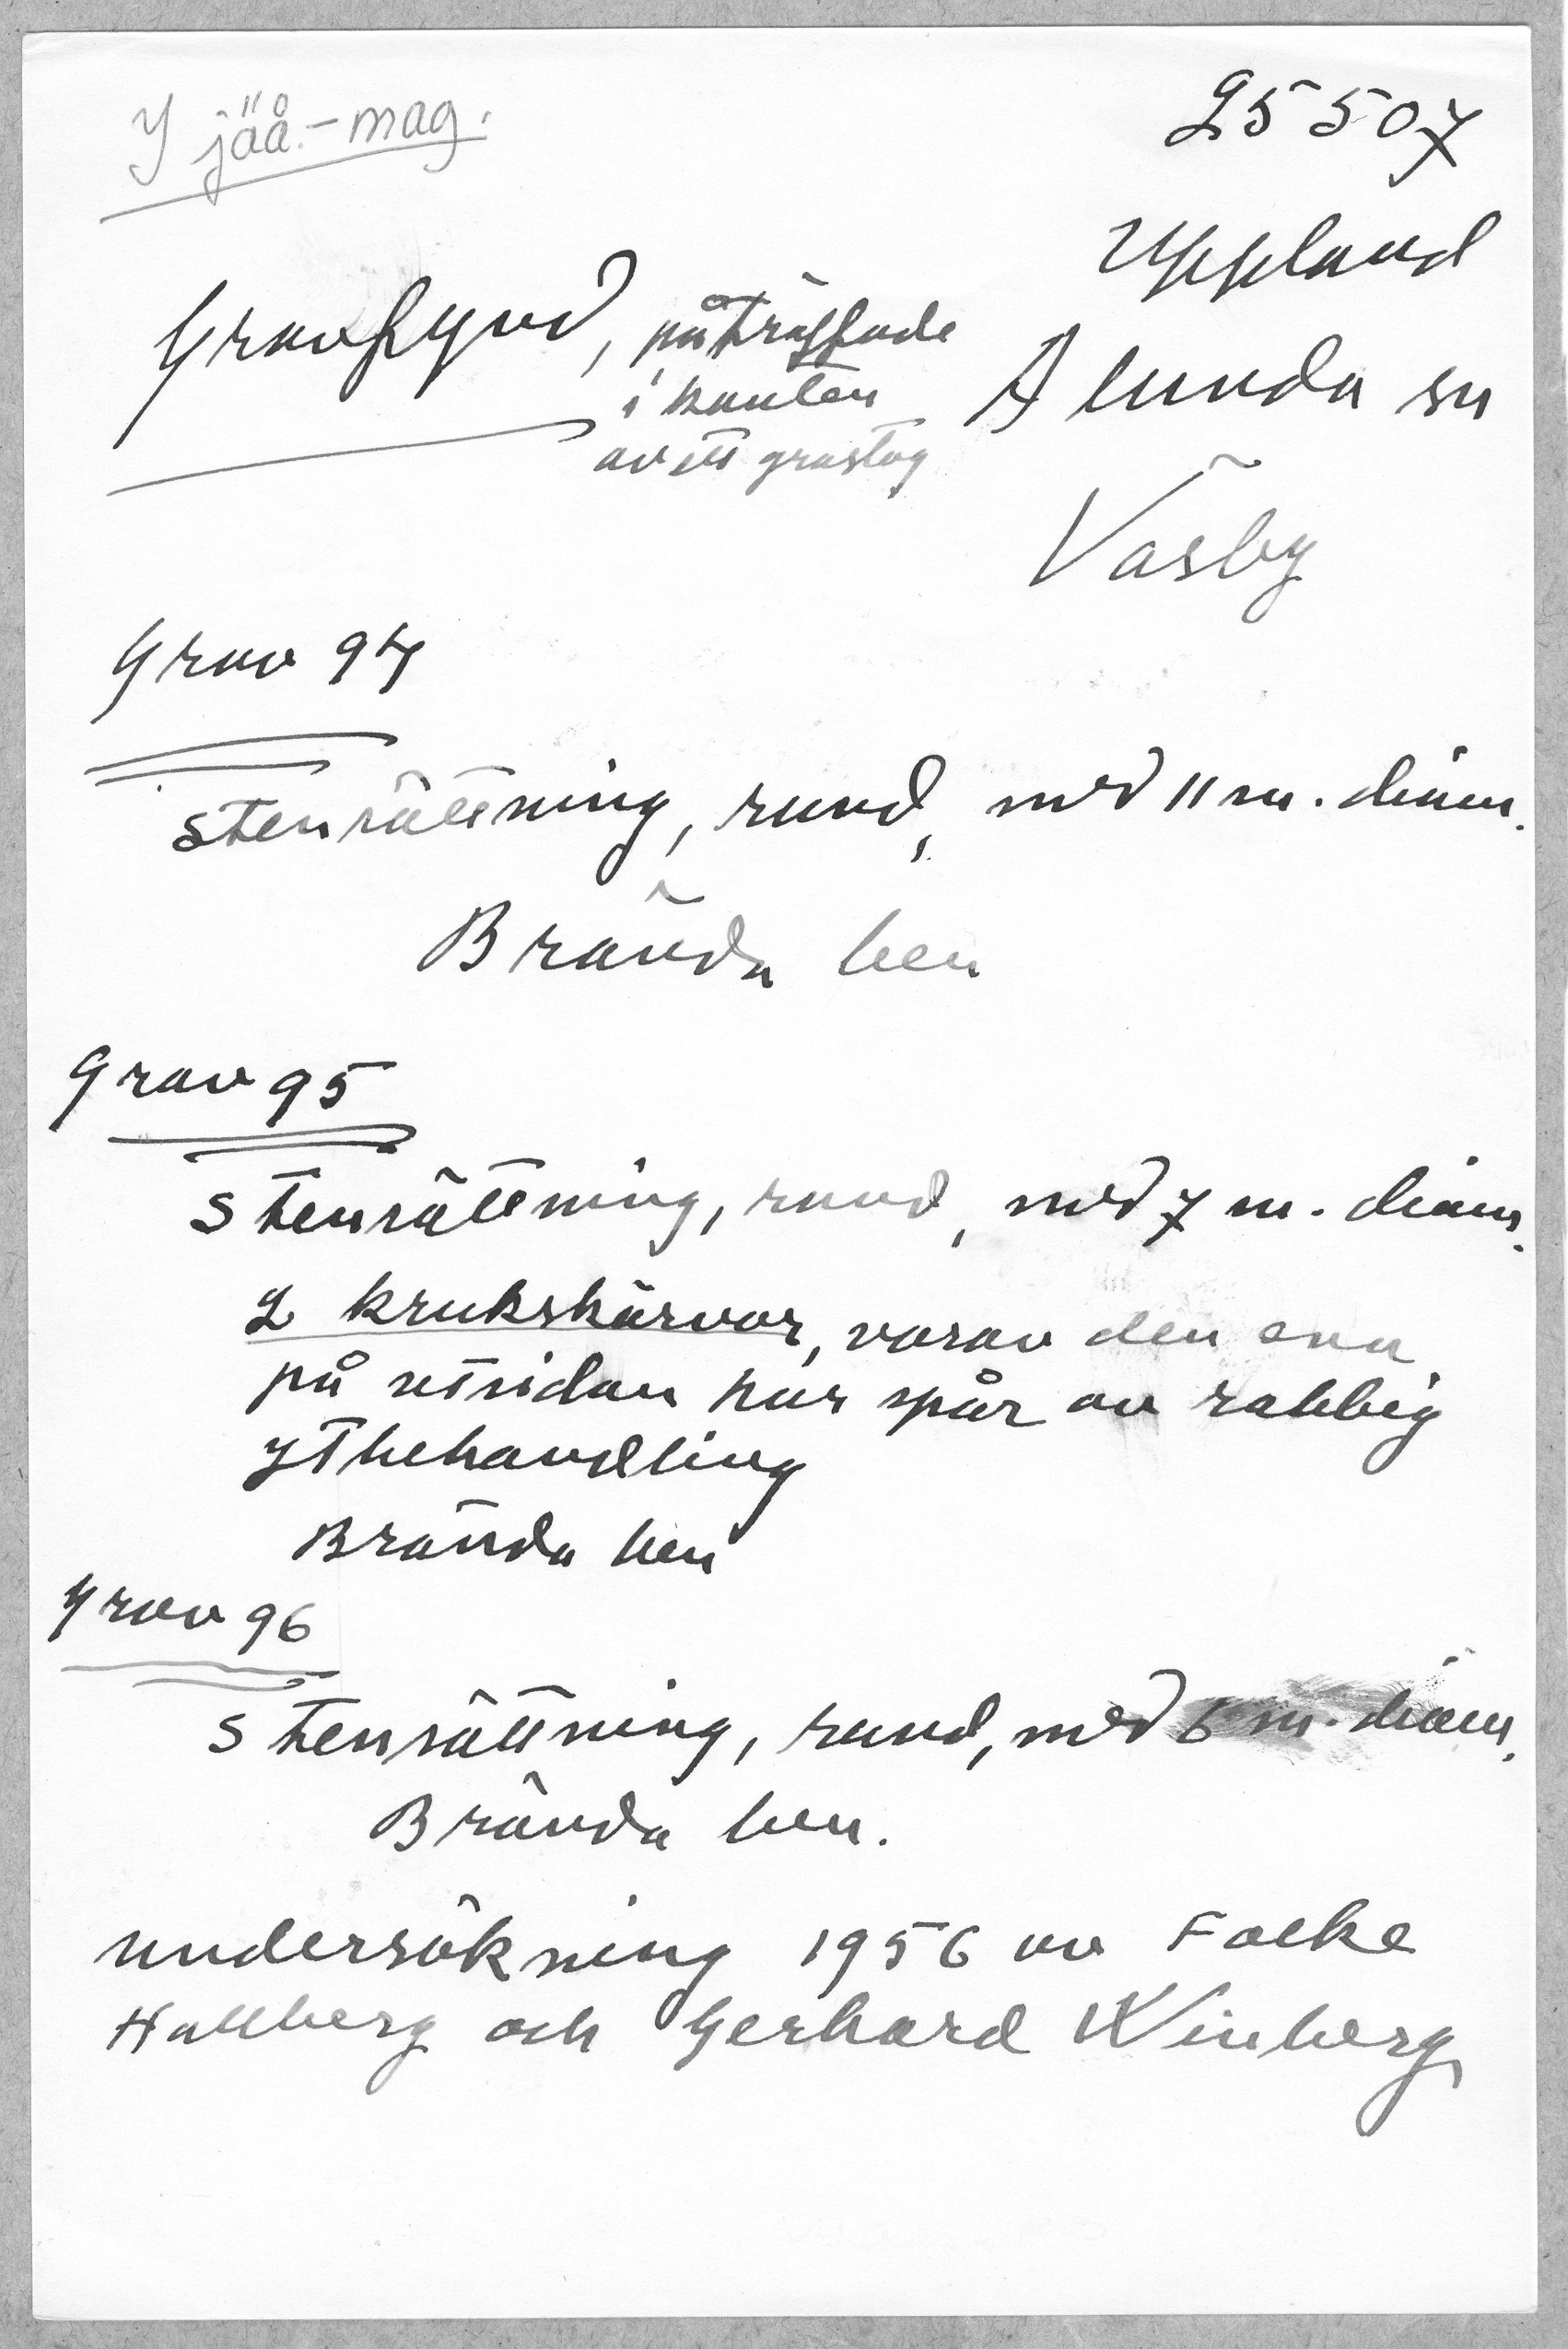 I jäå.-mag.
25507
Uppland
Alunda sn
Väsby
Gravfynd, påträffade
i kanten
av ett grustag
Grav 94
Stensättning, rund, med 11 m. diam.
Brända ben
Grav 95
Stensättning, rund, med 7 m. diam.
2 krukskärvor, varav den ena
på utsidan har spår av rabbig
ytbehandling
Brända ben
Grav 96
Stensättning, rund, med 6 m. diam.
Brända ben.
Undersökning 1956 av Folke
Hallberg och Gerhard Winberg